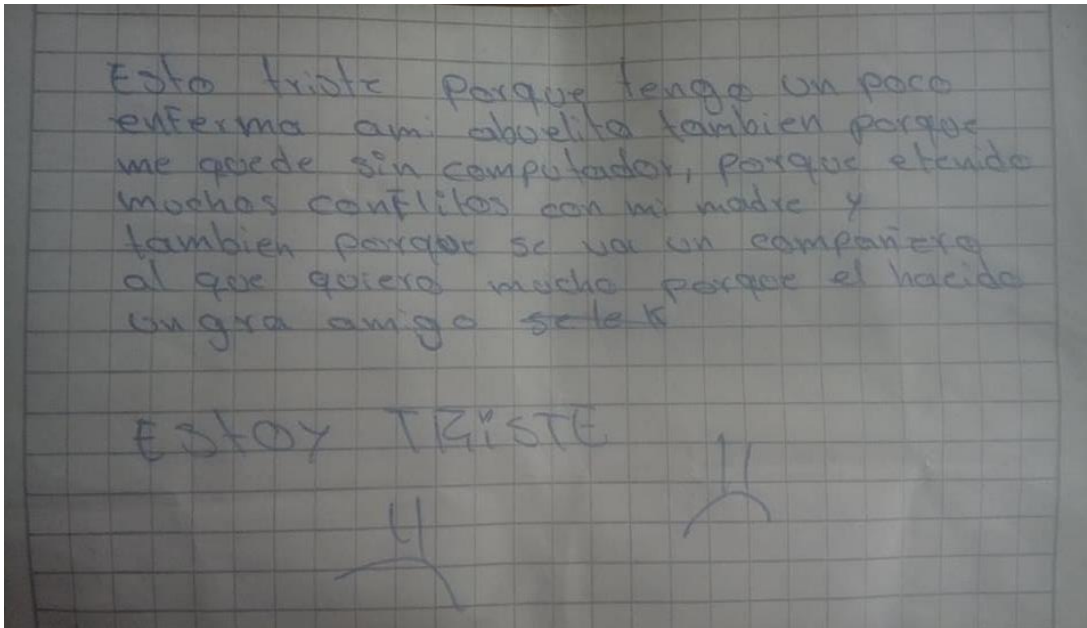 Esto triste porque tengo un poco
enferma ami abuelita tambien porque
me quede sin computador, porque etenido
muchos conflitos con mi madre y
tambien porque se va un compañero
al que quiero mucho porque el hacido
un gra amigo
ESTOY TRiSTE